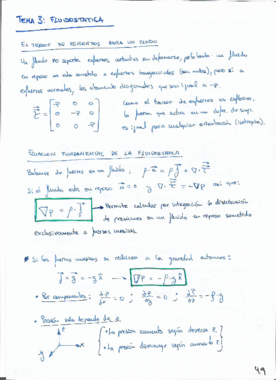 TEMA 3: FLUIDOSTÁTICA
EL TENSOR DE ESFUERZOS PARA UN FLUIDO
Un fluido no soporta esfuerzos cortantes sin deformarse, por lo tanto un fluido
en reposo no está sometido a esfuerzos tangenciales (son nulos), pero sí a
esfuerzos normales, los elementos diagonales que son igual a -p.
τ = [-p 0 0
0 -p 0
0 0 -p]
Como el tensor de esfuerzos es esférico,
la fuerza que actúa en un de sup.
es igual para cualquier orientación (isótropa).
ECUACIÓN FUNDAMENTAL DE LA FLUIDOSTÁTICA
Balance de fuerzas en un fluido: ρ·a = ρf + ∇·τ
Si el fluido está en reposo a = 0 y ∇·τ = -∇p así que:
∇p = ρ·f → Permite calcular por integración la distribución
de presiones en un fluido en reposo sometido
exclusivamente a fuerzas másicas.
Si las fuerzas másicas se reducen a la gravedad entonces:
f = g = -gk → ∇p = -ρ·gk
• Por componentes: ∂p/∂x = 0 ; ∂p/∂y = 0 ; ∂p/∂z = -ρ·g
• Presión solo depende de z
z
y
x
• La presión aumenta según decrece z.
• La presión disminuye según aumenta z.
49